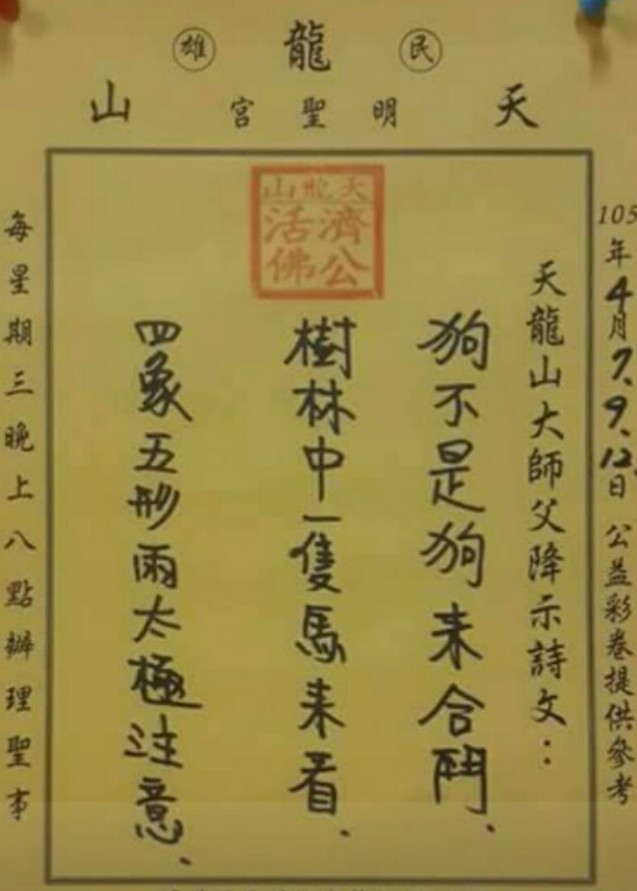 民 龍 雄
天 明聖宮 山
天龍山
濟公
活佛
105年4月7.9.12.日 公益彩卷提供參考
天龍山大師父降示詩文：
狗不是狗来合鬥、
樹林中一隻馬来看、
四象五形兩太極注意、
每星期三晚上八點辦理聖事